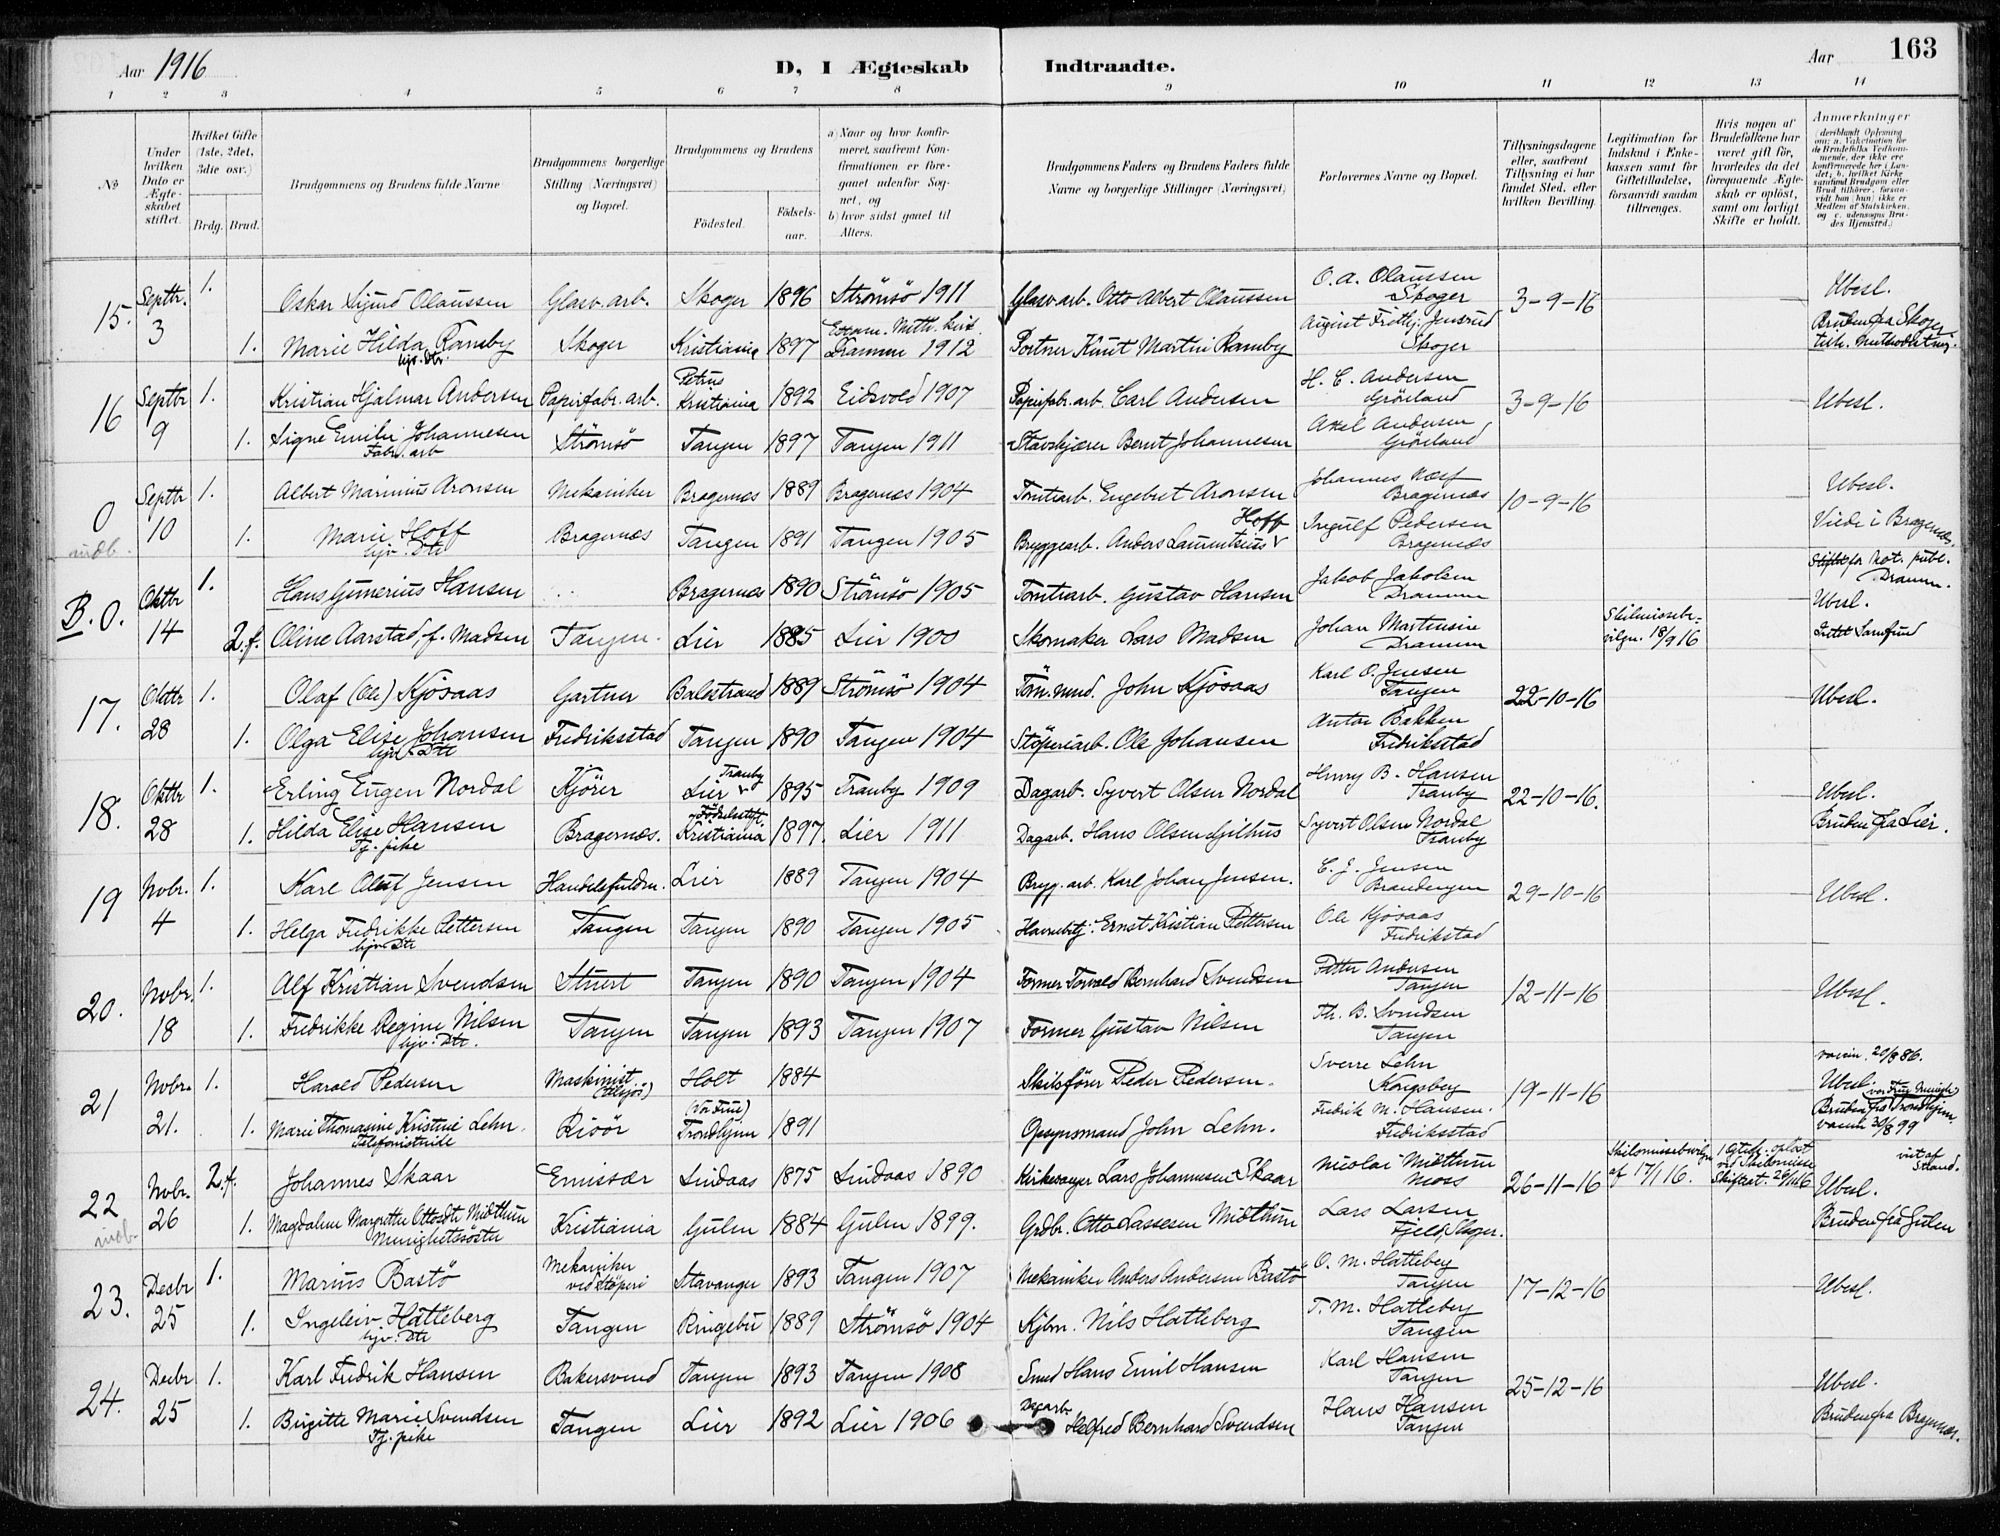 Aar 1916
D, I Ægteskab Indtraadte.
Aar 163
1 2 3 4 5 6 7 8 9 10 11 12 13 14
No
Under hvilken Dato er Ægteskabet stiftet.
Hvilket Gifte (1ste, 2det, 3die osv.)
Brdg. Brud.
Brudgommens og Brudens fulde Navne
Brudgommens borgerlige Stilling (Næringsvei) og Bopæl.
Brudgommens og Brudens
Fødested.
Fødselsaar.
a) Naar og hvor konfirmeret, saafremt Konfirmationen er foregaaet udenfor Sognet, og
b) hvor sidst gaaet til Alters.
Brudgommens Faders og Brudens Faders fulde Navne og borgerlige Stillinger (Næringsvei)
Forlovernes Navne og Bopæl.
Tillysningsdagene eller, saafremt Tillysning ei har fundet Sted, efter hvilken Bevilling.
Legitimation for Indskud i Enkekassen samt for Giftetilladelse, forsaavidt saadan tiltrænges.
Hvis nogen af Brudefolkene har været gift før, hvorledes da det foregaaende Ægteskab er opløst, samt om lovligt Skifte er holdt.
Anmærkninger
15. Septtr. 3 1. Oskar Sigurd Olaussen Glasv. arb. Skoger 1896 Strömsö 1911 Glasv. arb. Otto Albert Olaussen O. A. Olaussen Skoger 3-9-16 Ubesl.
1. Marie Hilda Ramby hjv. Dtr. Skoger Kristiania 1897 Dramm 1912 Portner Knut Martin Ramby August Fridtj. Jensrud Skoger Bruden fra Skoger
16 Septtr 9 1. Kristian Hjalmar Andersen Papirfabr. arb. Petrus Kristiania 1892 Eidsvold 1907 Papirfabr. arb. Carl Andersen H. C. Andersen Grönland 3-9-16 Ubesl.
1. Signe Emilie Johannesen Fabr. arb Strömsö Tangen 1897 Tangen 1911 Stavskjærer Bernt Johannesen Axel Andersen Grönland
0 Septtr 10 1. Albert Marinius Aronsen Mekaniker Bragernæs 1889 Bragernæs 1904 Tomtearb. Engebret Aronsen Johannes Næss Bragernæs 10-9-16 Ubesl.
indb. 1. Marie Hoff hjv. Dtr Bragernæs Tangen 1891 Tangen 1905 Bryggearb. Anders Laurentsius Hoff Ingulf Pedersen Bragernæs Viede i Bragernæs.
B. 0. Oktbr 14 1. Hans Gunerius Hansen Bragernæs 1890 Strömsö 1905 Tomtearb. Gustav Hansen Jakob Jakobsen Dramm Stiftet for Not. publ. Dramm. Ubesl.
2. f. Oline Aarstad, f. Madsen Tangen. Lier 1885 Lier 1900 Skomaker Lars Madsen Johan Martinsen Dramm Skilmissebevilgn. 18/9 16 Intet Samfund
17. Oktbr 28 1. Olaf (Ole) Kjösaas Gartner Balestrand 1889 Strömsö 1904 Töm. mnd. John Kjösaas Karl O. Jensen Tangen 22-10-16 Ubesl.
1. Olga Elise Johansen hjv. Dtr Fredriksstad Tangen 1890 Tangen 1904 Stöperiarb. Ole Johansen Anton Bakken Fredriksstad
18. Oktbr 28 1. Erling Eugen Nordal Kjörer Lier Tranby 1895 Tranby 1909 Dagarb. Syvert Olsen Nordal Henry B. Hansen Tranby 22-10-16. Ubesl.
1. Hilda Elise Hansen Tj. pike Bragernæs. Födselsstift. Kristiania 1897. Lier 1911 Dagarb. Hans Olsen Gilhus Syvert Olsen Nordal Tranby Bruden fra Lier.
19 Novbr. 4 1. Karl Oluf Jensen Handelsfuldm. Lier 1889 Tangen 1904 Bryg. arb. Karl Johan Jensen. C. J. Jensen Brandengen 29-10-16 Ubesl.
1. Helga Fredrikke Pettersen hjv. Dtr Tangen Tangen 1890 Tangen 1905 Havnebtj. Ernst Kristian Pettersen Ole Kjösaas Fredrikstad
20. Novbr. 18 1. Alf Kristian Svendsen Stuert Tangen 1890 Tangen 1904 Former Torvald Bernhard Svendsen Petter Andersen Tangen 12-11-16 Ubesl.
1. Fredrikke Regine Nilsen hjv. Dtr. Tangen Tangen 1893 Tangen 1907 Former Gustav Nilsen Th. B. Svendsen Tangen
21 Novbr. 21. 1. Harald Pedersen Maskinist (tilsjös) Holt 1884 Skibsförer Peder Pedersen. Sverre Lehn Kongsberg 19-11-16 vaccin. 29/8 86. Ubesl.
1. Marie Thomasine Kristine Lehn. Telefonistinde Risör (Vor Frue) Trondhjem 1891 Opsynsmand John Lehn. Fredrik M. Hansen. Fredriksstad Bruden fra Trondhjem. vaccin 30/8 99
22 Novbr. 26 2. f. Johannes Skaar Emissær Lindaas 1875 Lindaas 1890 Kirkesanger Lars Johannesen Skaar Nicolai Midthun Moss 26-11-16 Skilsmissebevilgn. af 17/1 16. 1 Ægtesk. oplöst ved Skilsmisse Skifteat. 29/11 16 viet af Strand. Ubesl.
indb. 1. Magdalene Margrethe Ottosdtr Midthun Menighetssöster Kristiania Gulen 1884 Gulen 1899. Grdbr. Otto Lassesen Midthun Lars Larsen Fjeld, Skoger. Bruden fra Gulen
23. Decbr 25 1. Marius Bastö Mekaniker ved Stöperi Stavanger 1893 Tangen 1907 Mekaniker Anders Andersen Bastö O. M. Hatleberg Tangen 17-12-16 Ubesl.
1. Ingeleiv Hatleberg hjv. Dtr Tangen Ringebu 1889 Strömsö 1904 Kjbm. Nils Hatleberg T. M. Hatleberg Tangen
24. Decbr 25 1. Karl Fredrik Hansen Bakersvend Tangen 1893 Tangen 1908 Smed Hans Emil Hansen Karl Hansen Tangen 25-12-16 Ubesl.
1. Birgitte Marie Svendsen Tj. pike Tangen Lier 1892 Lier 1906 Dagarb. Helfred Bernhard Svendsen Hans Hansen Tangen Bruden fra Bragernæs.